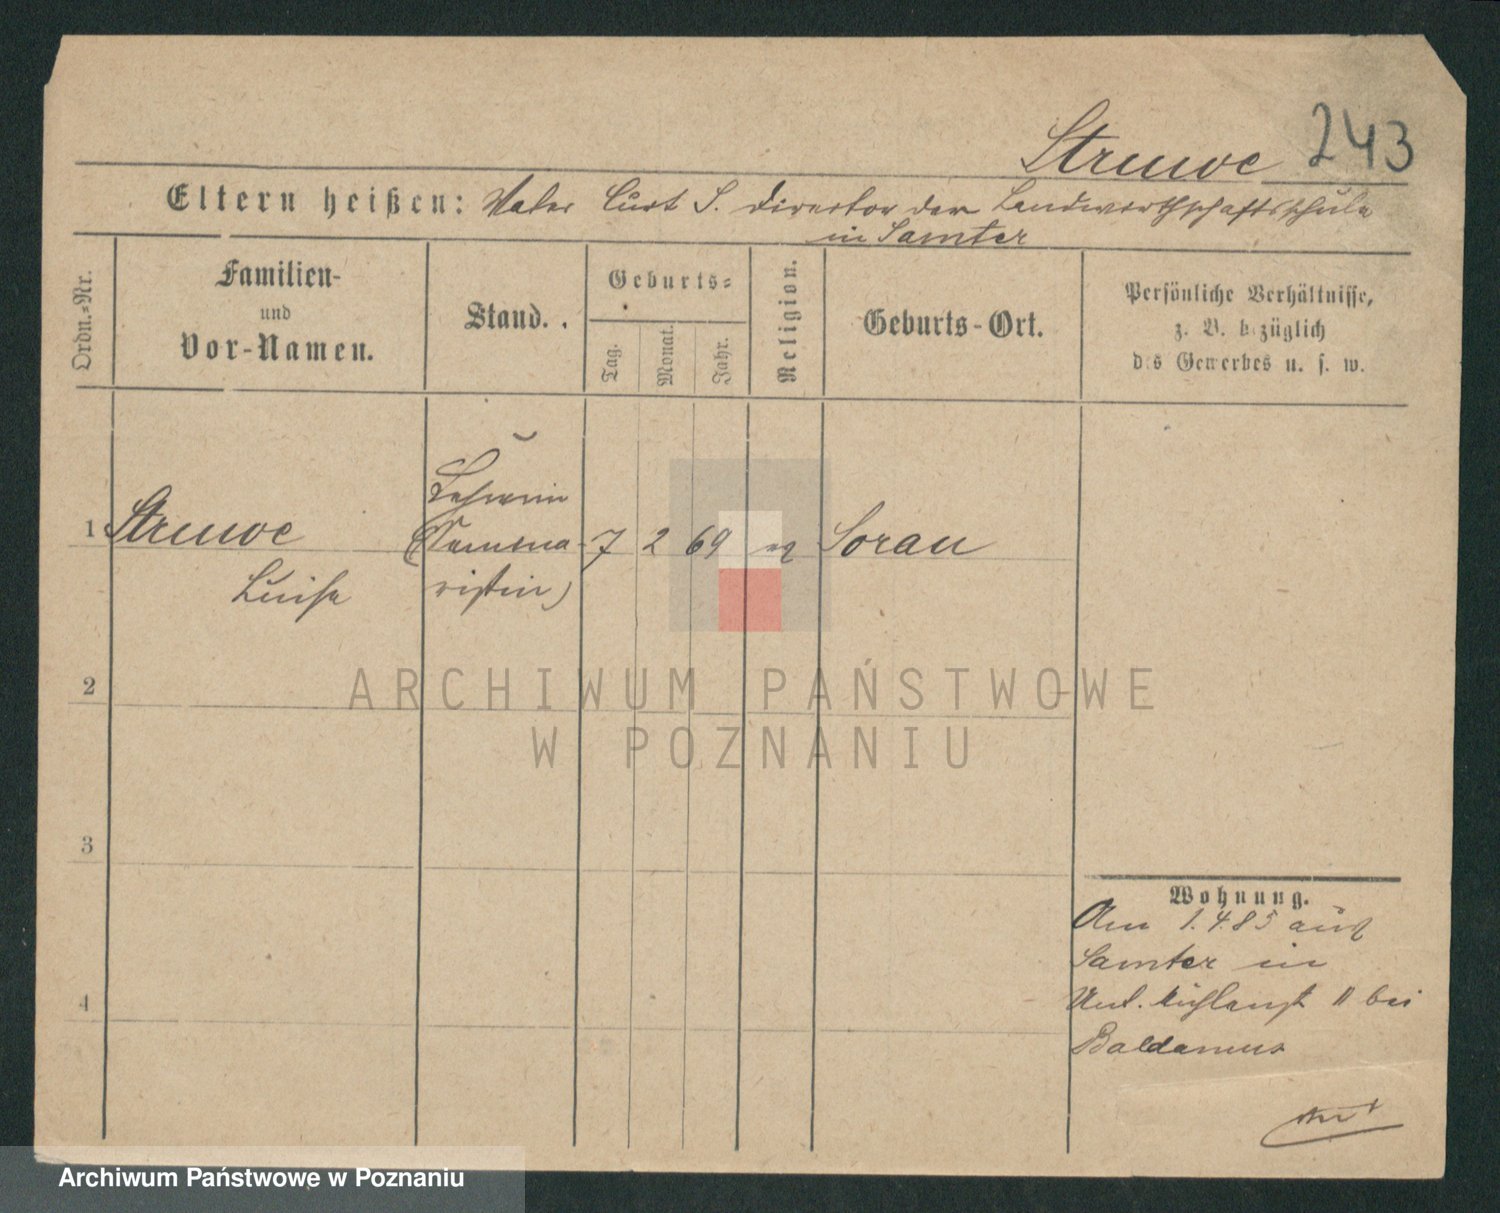 Struve 243
Eltern heißen: Vater Curt S. Director der Landwirthschaftsschule
in Samter
Ordn.-Nr.
Familien-
und
Vor-Namen.
Stand.
Geburts-
Tag.
Monat.
Jahr.
Religion.
Geburts-Ort.
Persönliche Verhältnisse,
z. B. bezüglich
des Gewerbes u. s. w.
Lehrerin
1 Struve (Semina- 7 2 69 ev Sorau
Luise ristin)
2
3
4
Wohnung.
Am 1.4.85 aus
Samter in
11 bei
Baldamus
ARCHIWUM PAŃSTWOWE
W POZNANIU
Archiwum Państwowe w Poznaniu